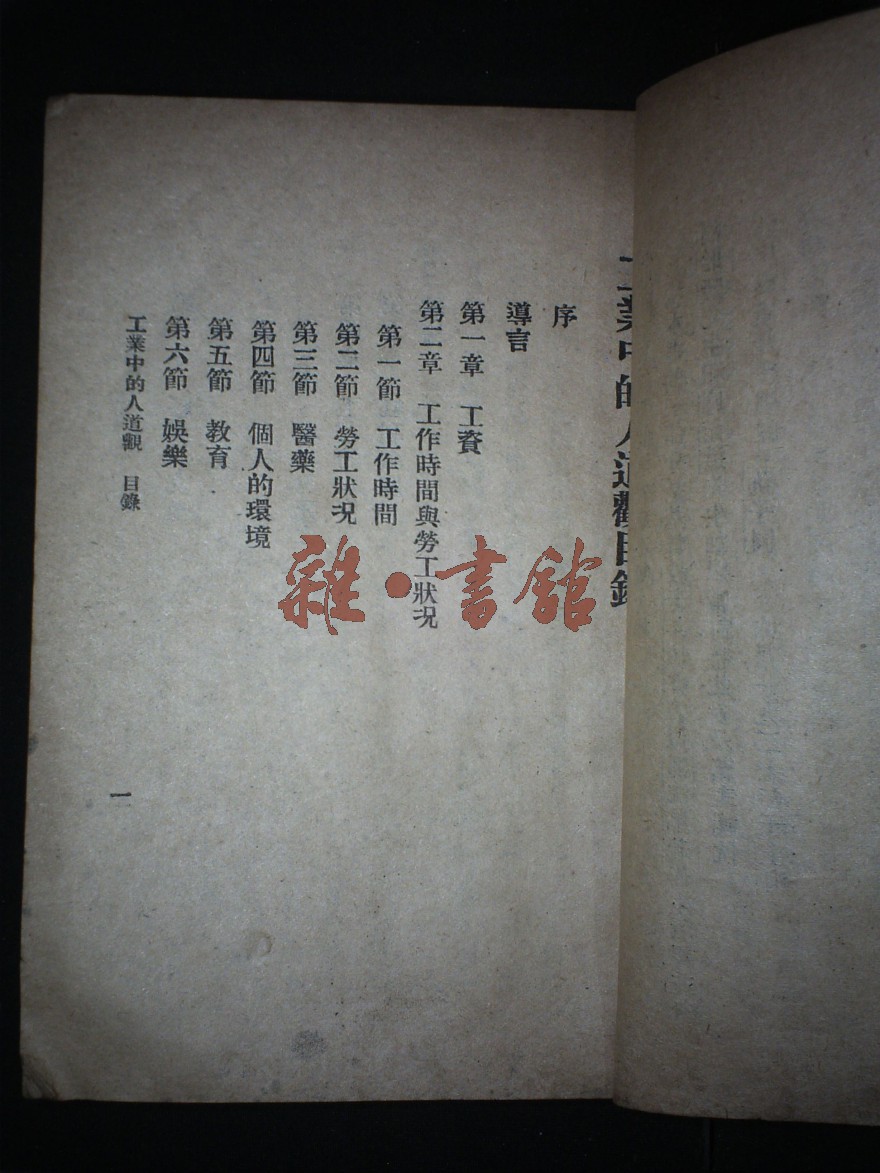 工業中的人道觀目錄
序
導言
第一章　工資
第二章　工作時間與勞工狀況
第一節　工作時間
第二節　勞工狀况
第三節　醫藥
第四節　個人的環境
第五節　教育
第六節　娛樂
工業中的人道觀　目錄
一
雜·書館